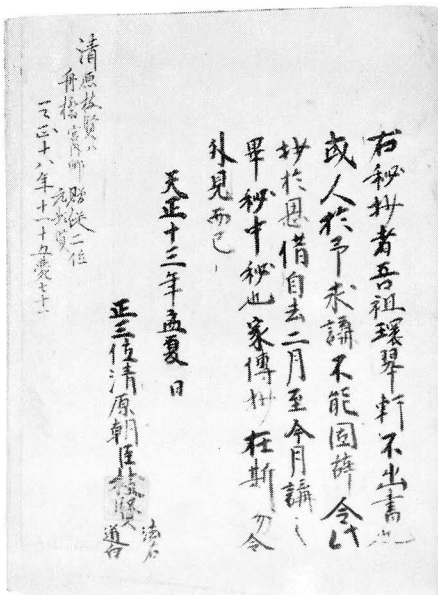 右秘抄者吾祖環翠軒不出書也
或人於予求講不能固辞令此
抄於恩借自去二月至今月講之
畢秘中秘也家傳抄在斯勿令
外見而已
天正十三年孟夏日
正三位清原朝臣枝賢
法名
道白
清原枝賢ハ
舟橋宮内卿贈従二位
天正十八年十一十五薨七十一